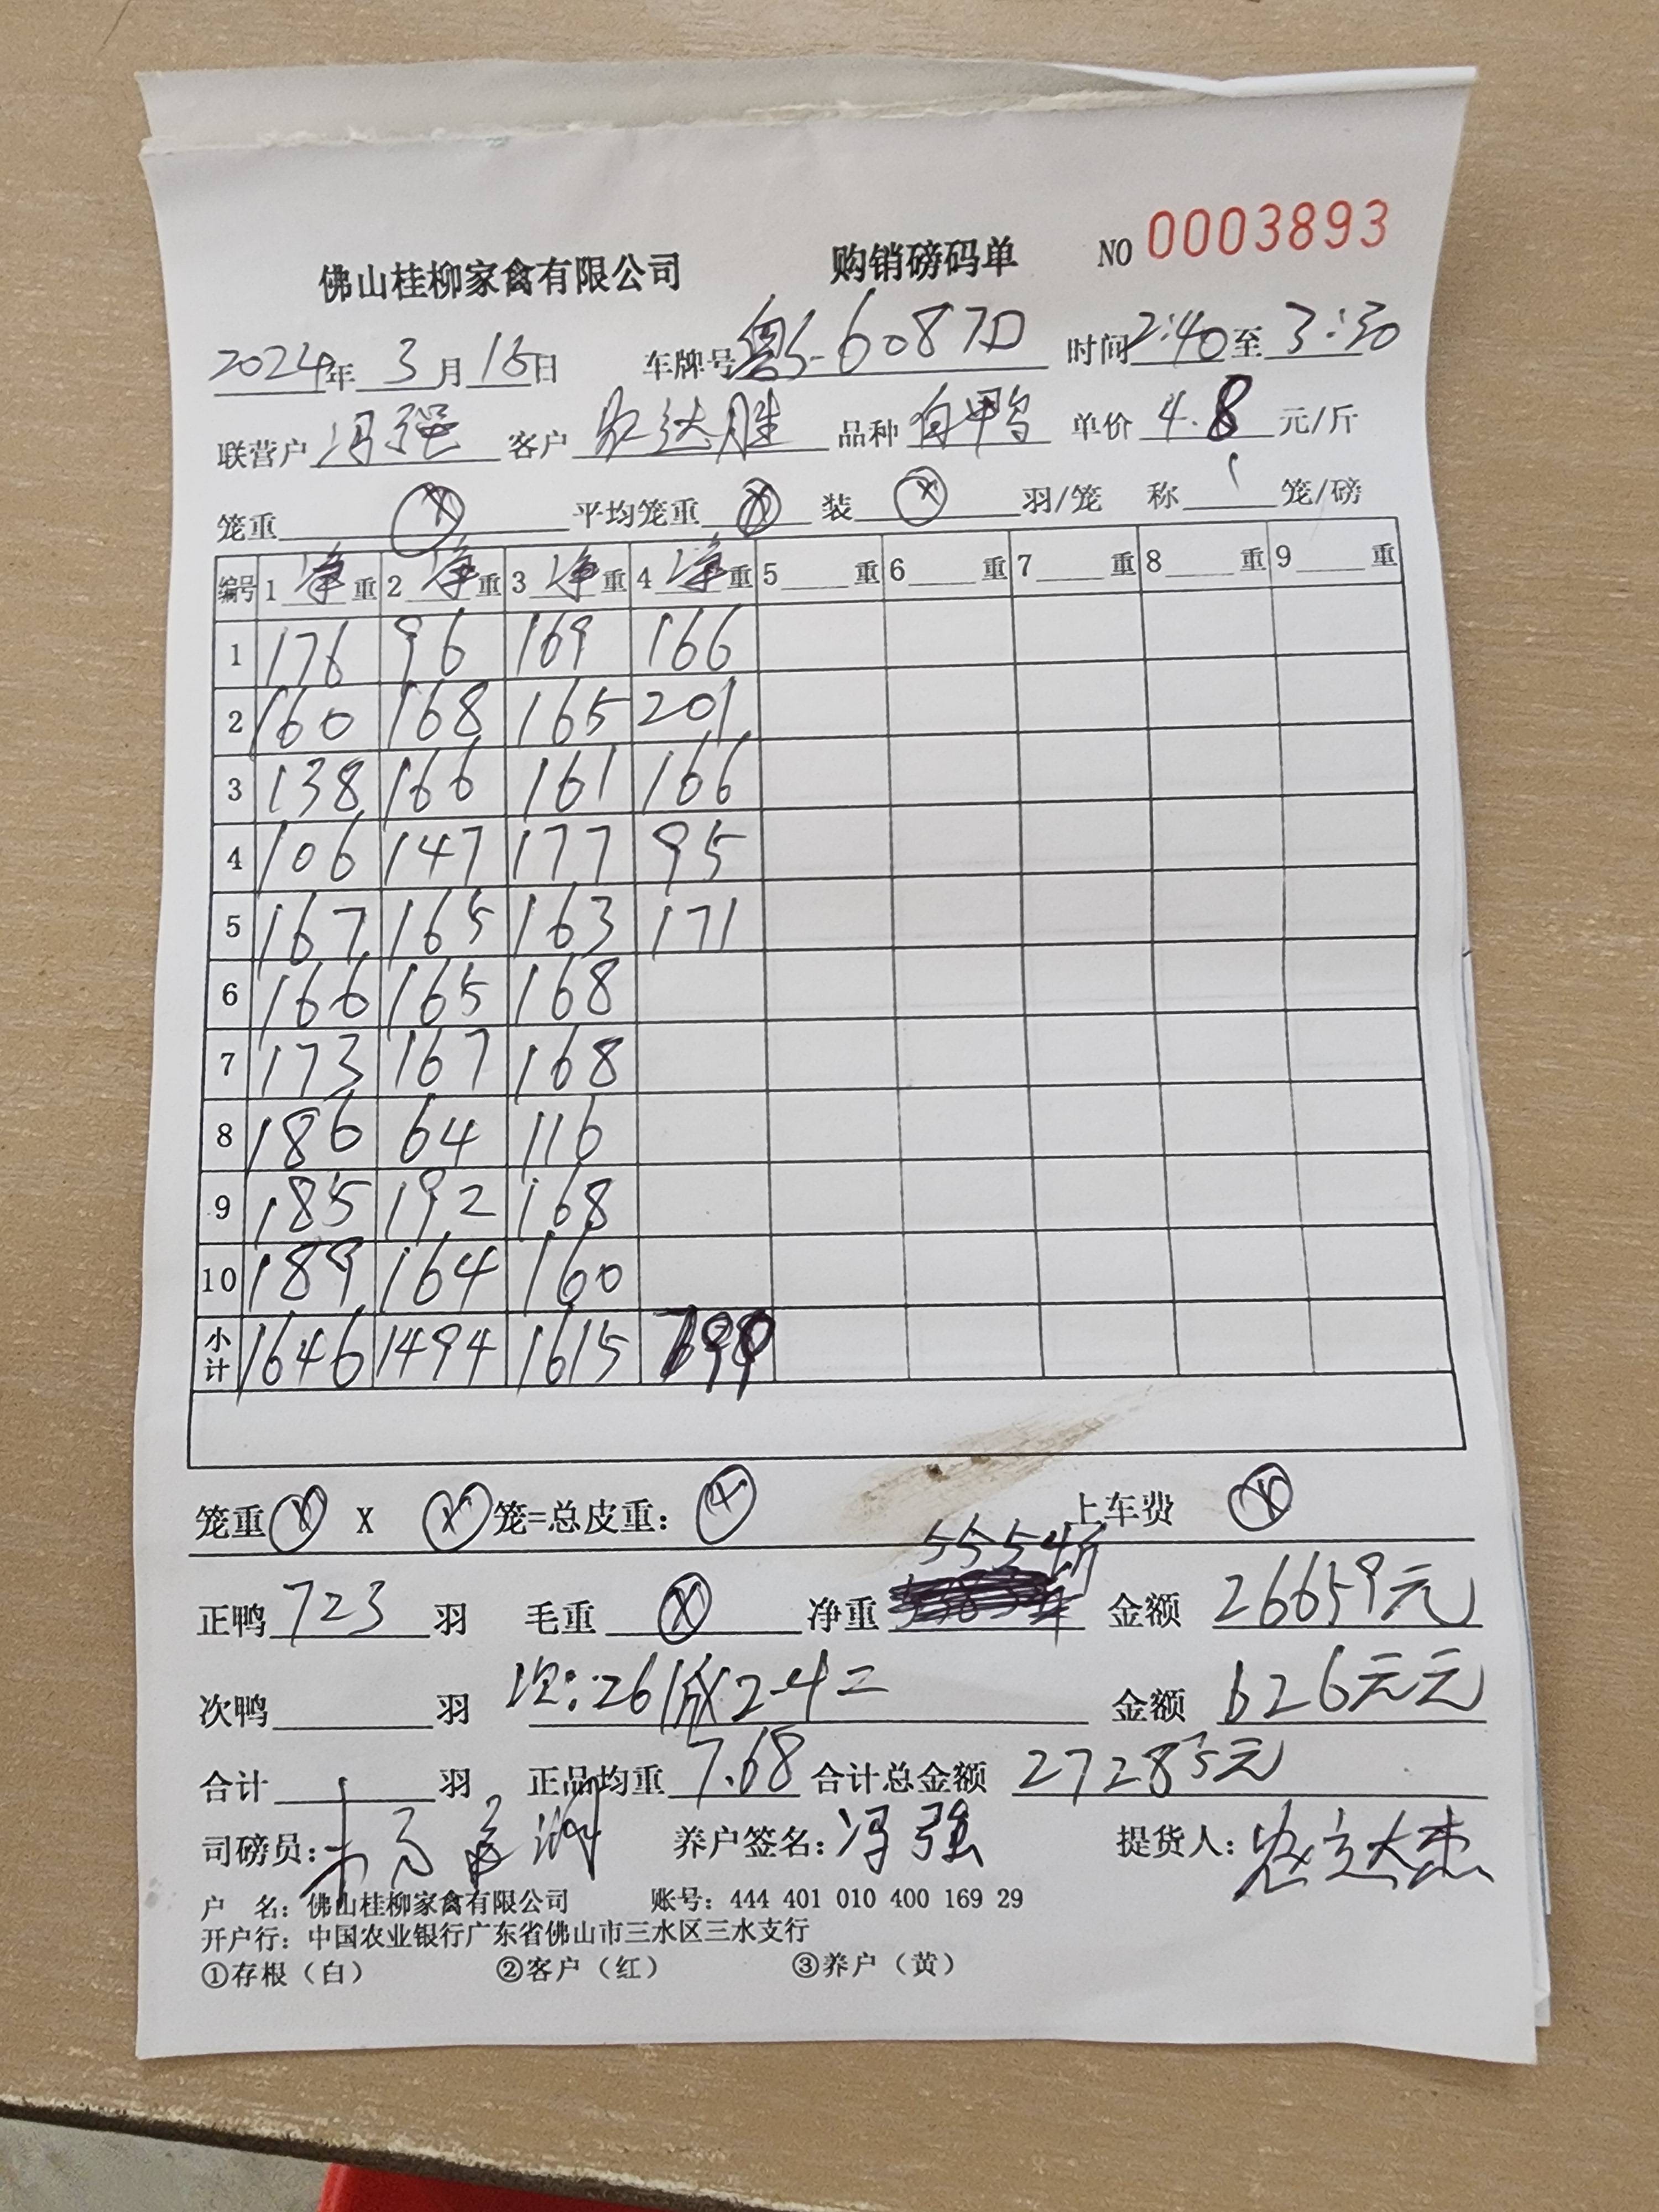 佛山桂柳家禽有限公司 购销磅码单 NO 0003893
2024年 3 月 16 日 车牌号 6087D 时间 2:40 至 3:30
联营户 冯强 客户 达胜 品种 白鸭 单价 4.8 元/斤
笼重 ⓧ 平均笼重 ⓧ 装 ⓧ 羽/笼 称 1 笼/磅
编号 1 净 重 2 净 重 3 净 重 4 净 重 5 重 6 重 7 重 8 重 9 重
1 176 96 169 166
2 160 168 165 201
3 138 166 161 166
4 106 147 177 95
5 167 165 163 171
6 166 165 168
7 173 167 168
8 186 64 116
9 185 192 168
10 189 164 160
小计 1646 1494 1615 799
笼重 ⓧ X ⓧ 笼=总皮重: ⓧ 上车费 ⓧ
正鸭 723 羽 毛重 ⓧ 净重 5554斤 金额 26659元
次鸭 羽 次:261 2.4 = 金额 626元元
合计 羽 正品均重 7.68 合计总金额 27285元
司磅员: 养户签名: 冯强 提货人:
户 名: 佛山桂柳家禽有限公司 账号: 444 401 010 400 169 29
开户行: 中国农业银行广东省佛山市三水区三水支行
①存根（白） ②客户（红） ③养户（黄）